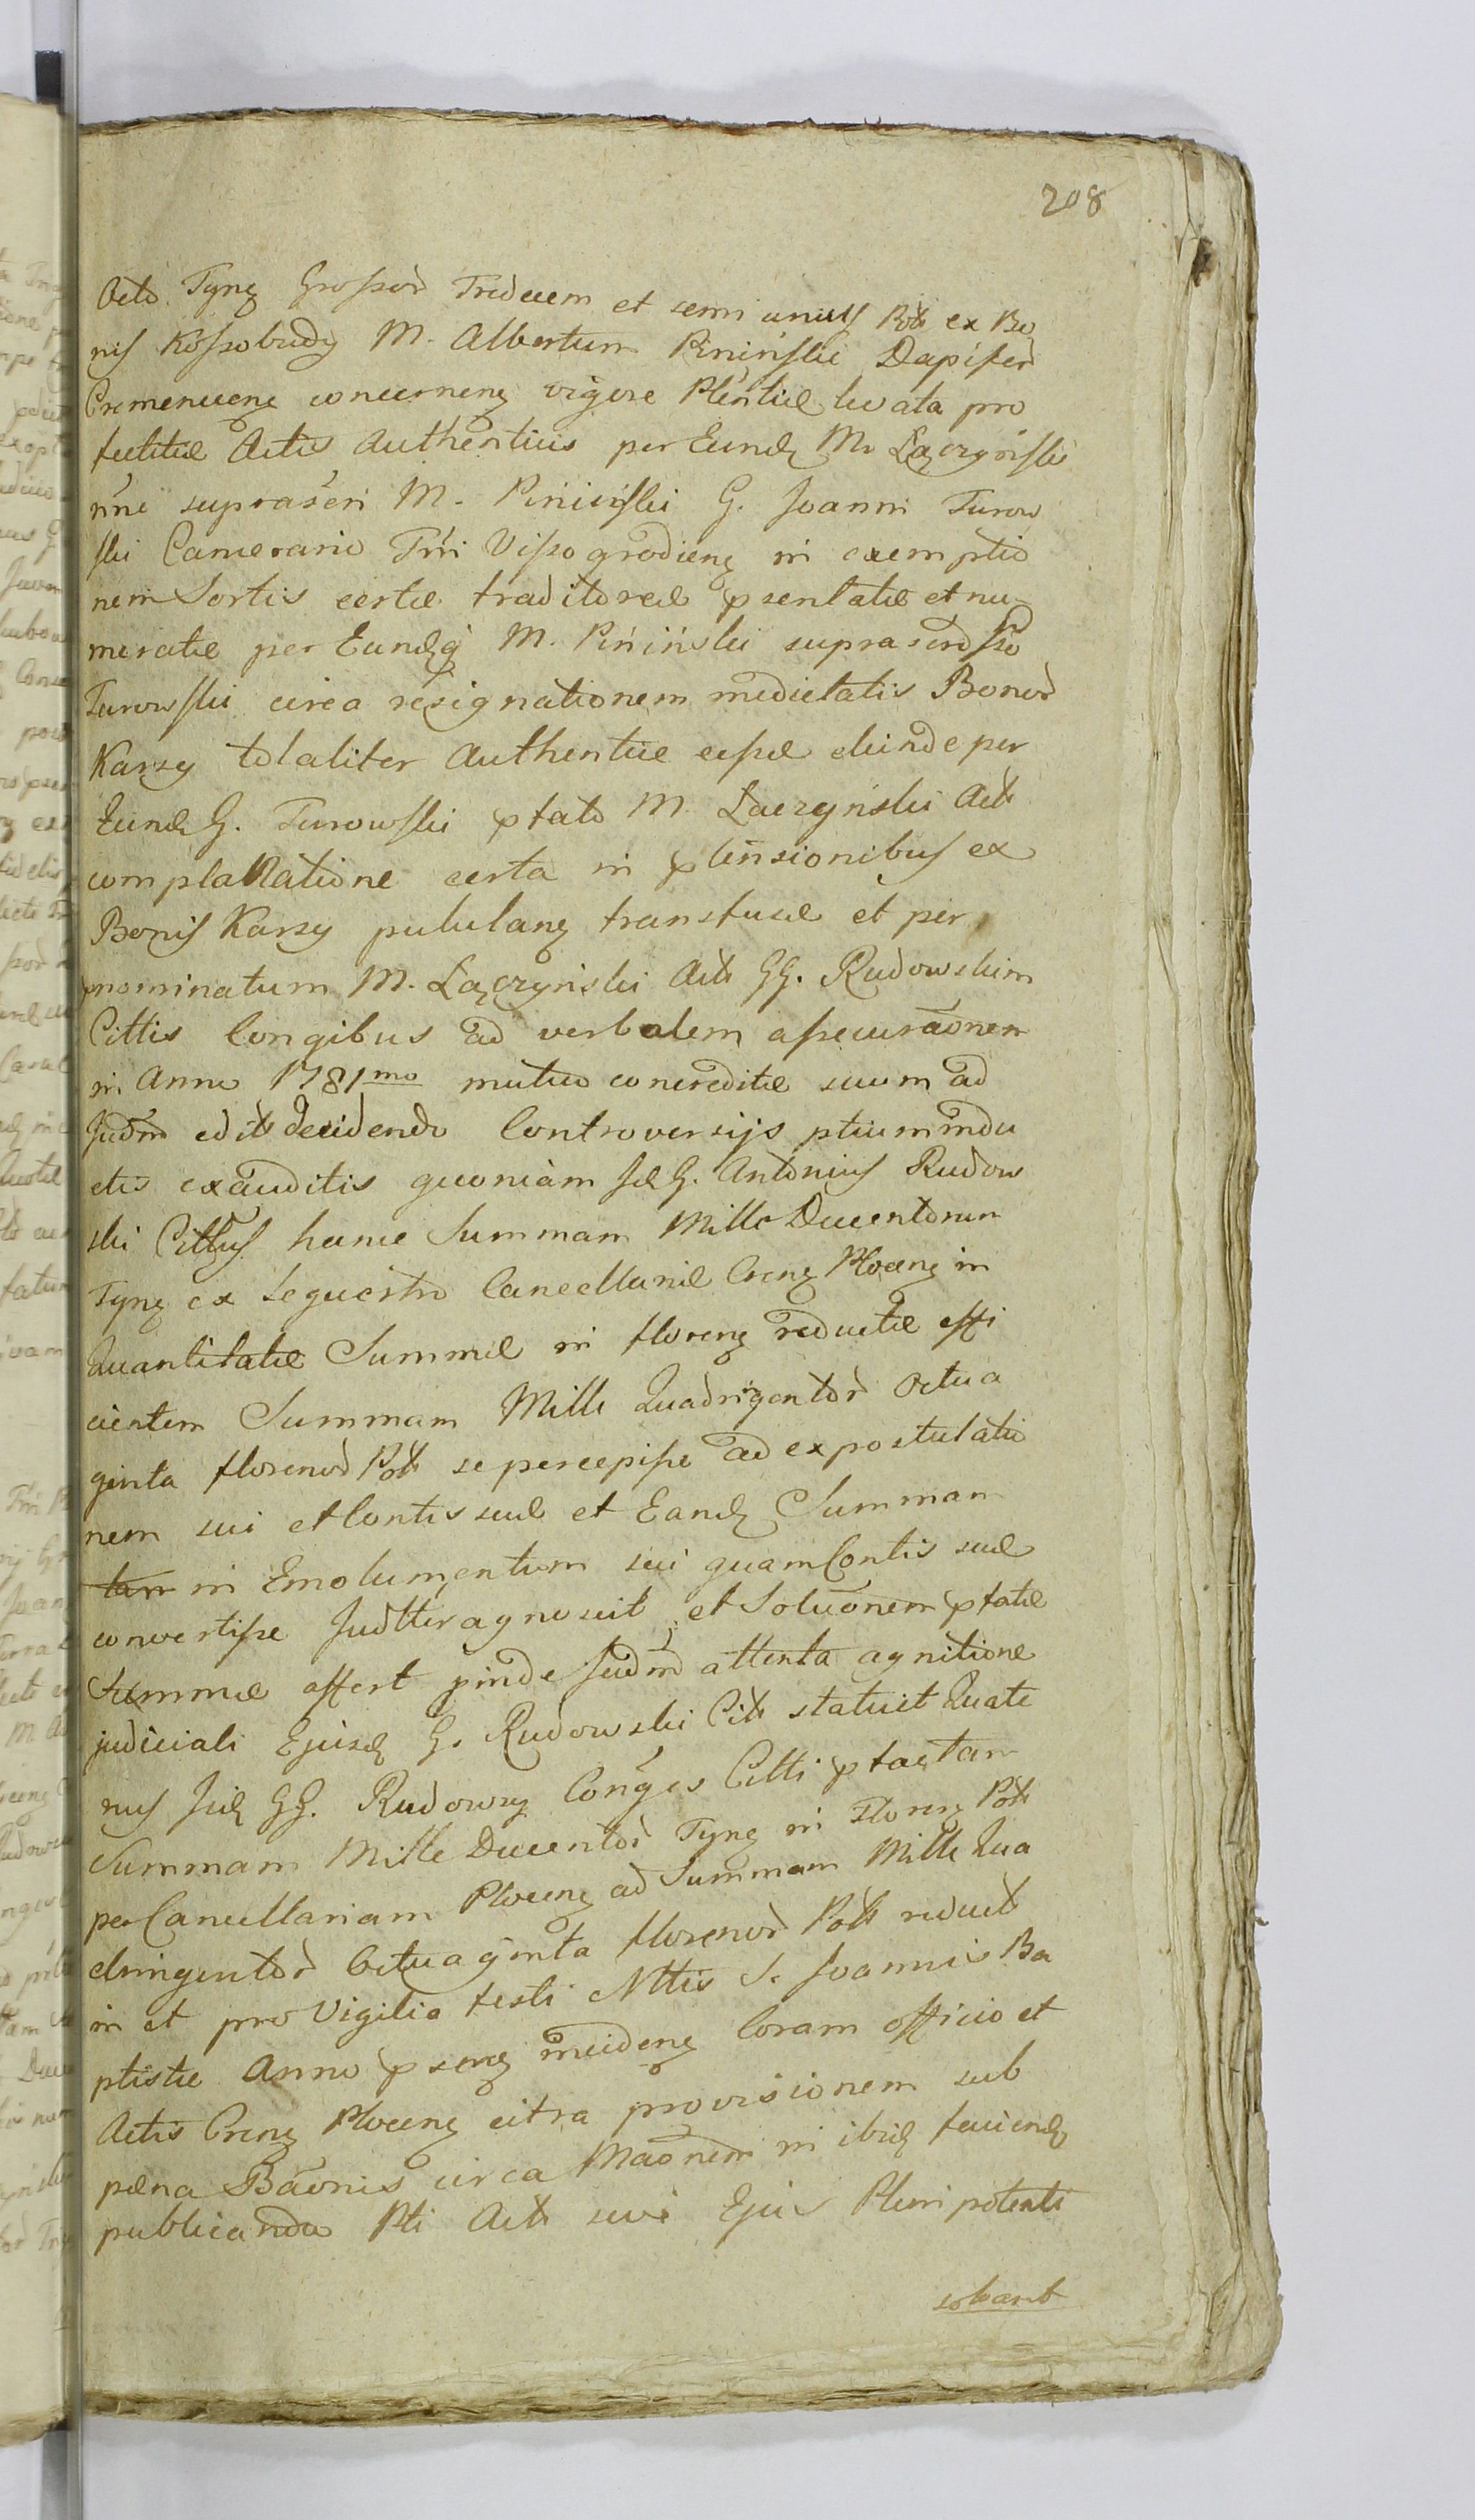 208
Octo Tyng Grossor Tredecem et semi unius Polt ex Bo
nis Kossobudy M. Albertum Pininski Dapifer
Cremenceng concerneng vigore Plentiæ levata pro
fectitiæ Actis Authenticis per Eund M. Łączyński
nne suprascri M. Pininski G. Joanni Turow
ski Camerario Trri Vissogrodieng in exemptio
nem Sortis certæ traditoreæ psentatæ et nu-
meratæ per Eundq M. Pininski suprascr
Turowski circa resignationem medietatis Bonor
Karsy totaliter Authenticæ cessæ ehinde per
Eund G. Turowski ptato M Łaczyński Act
complanatione certa in ptensionibus ex
Bonis Karsy pululang transfusæ et per
pnominatum M. Łączyński Act GG. Rudowskim
Cittis Congibus ad verbalem assecuraonem
in Anno 1781mo mutuo concreditæ suum ad
Judm edit decidendo Controversijs ptium mdu
ctis exauditis quoniam G. Antonius Rudow
ski Cittus hance Summam Mille Ducentorum
Tyng ex Sequestro Cancellariæ Creng Ploceng in
Quantitatæ Summæ in floreng reductæ effi
cientem Summam Mille Quadrigentor Octua
ginta florenor Polt se percepisse ad expostulatio
nem sui et Contis suæ et Eand Summam
tam in Emolumentum sui quam Contis suæ
convertisse Judtter agnoscit et Soluonem ptatæ
Summæ offert pinde Judm attenta agnitione
judiciali Ejusd G. Rudowski Cit statuit Quate
nus GG. Rudowscy Conges Citti ptactam
Summam Mille Ducentor Tyng in Floreng Polt
per Cancellariam Ploceng ad Summam Mille Qua
dringentor Octuaginta florenor Polt reduct
in et pro Vigilia festi Nttis S. Joannis Ba
ptistæ Anno pseng incideng Coram officio et
Actis Creng Ploceng citra provisionem sub
pæna Baonis circa Maonem in ibid faciend
publicanda Pti Act sive Ejus Plenipotenti
solvant